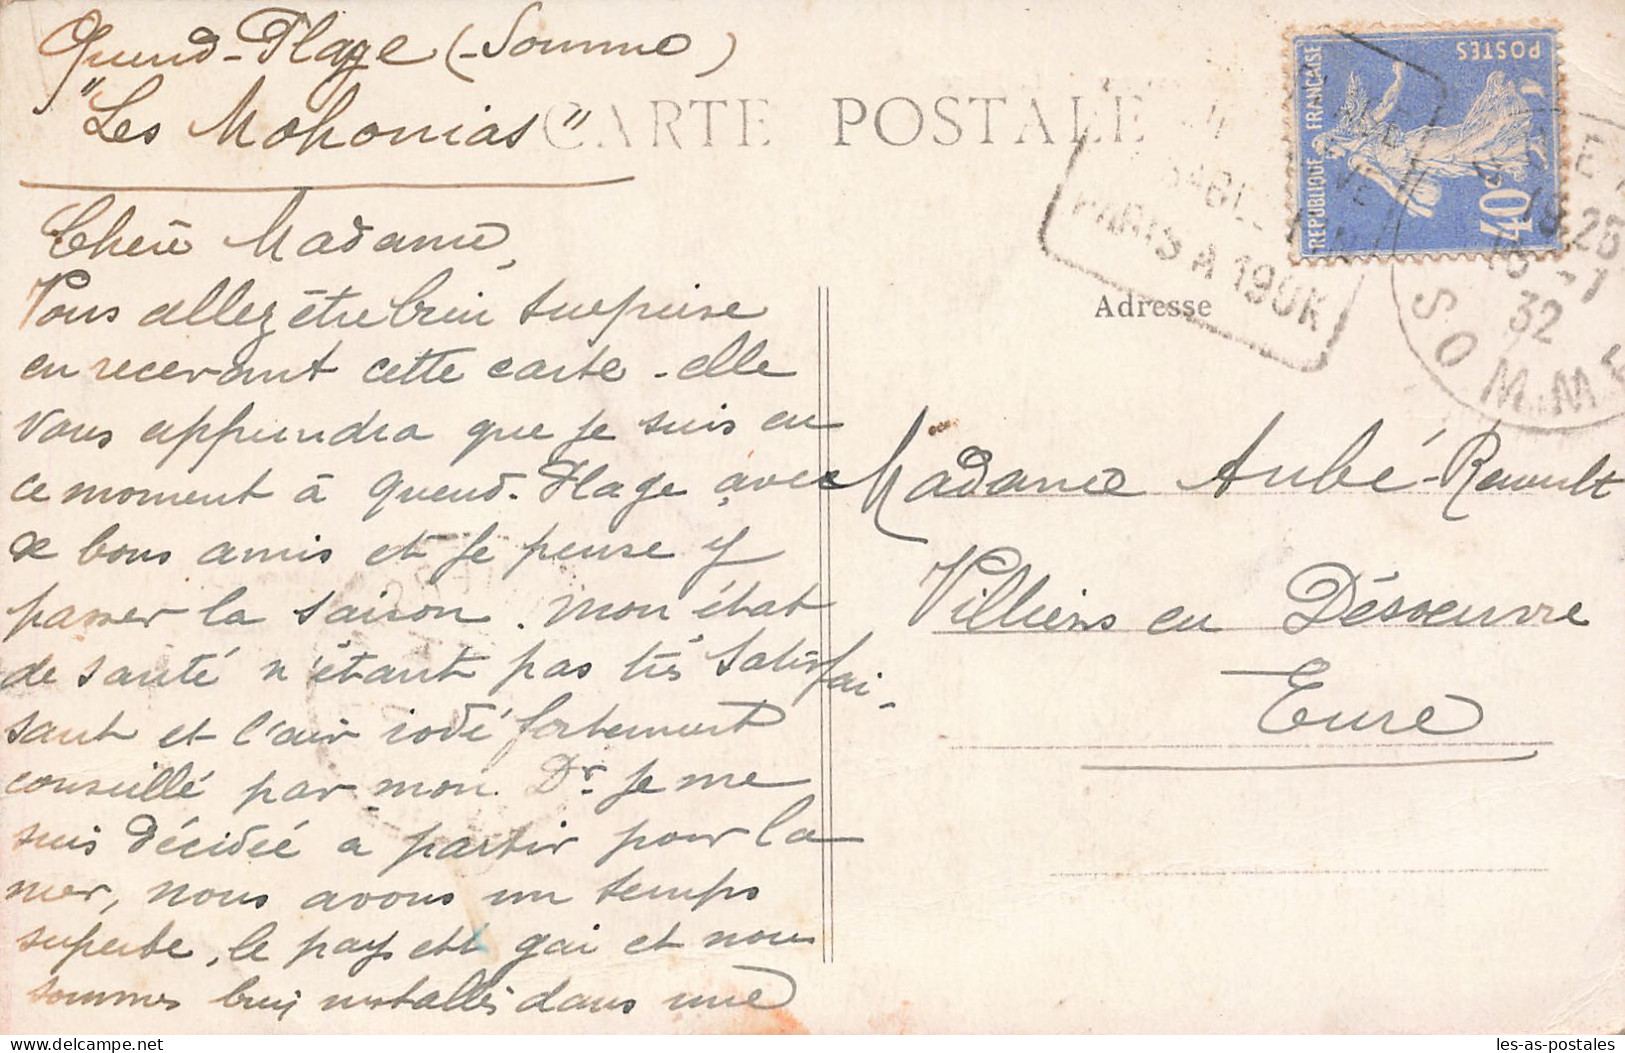 Quend-Plage (Somme)
"Les Mahonias"
CARTE POSTALE
Chère Madame,
Vous allez être bien surprise
en recevant cette carte - elle
vous apprendra que je suis en
ce moment à Quend-Plage avec
de bons amis et je pense y
passer la saison. Mon état
de santé n'étant pas très satisfai-
sant et l'air iodé fortement
conseillé par mon Dr. je me
suis décidée a partir pour la
mer, nous avons un temps
superbe, le pays est gai et nous
sommes bien installés dans une
REPUBLIQUE FRANÇAISE
POSTES
40c
SABLE FIN
PARIS A 190K
15 25
32
SOMME
Adresse
Madame Aubé-Renault
Villiers en Désœuvre
Eure
les-as-postales.com